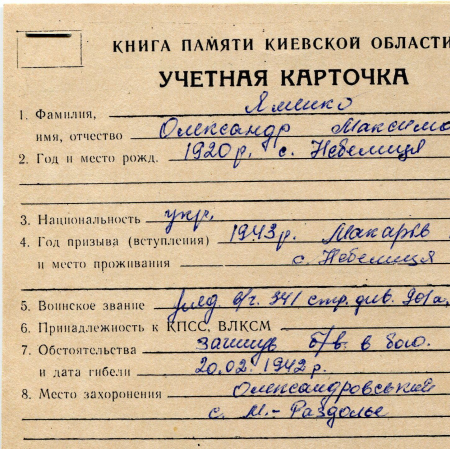 КНИГА ПАМЯТИ КИЕВСКОЙ ОБЛАСТИ
УЧЕТНАЯ КАРТОЧКА
1. Фамилия, Яменко
имя, отчество Олександр Максимо
2. Год и место рожд. 1920р. с. Небелиця
3. Национальность укр.
4. Год призыва (вступления) 1943р. Макарів
и место проживания с. Небелиця
5. Воинское звание 341 стр. див.
6. Принадлежность к КПСС, ВЛКСМ
7. Обстоятельства загинув б/в. в бою.
и дата гибели 20.02. 1942р.
8. Место захоронения Олександровський
с. М.-Раздолье